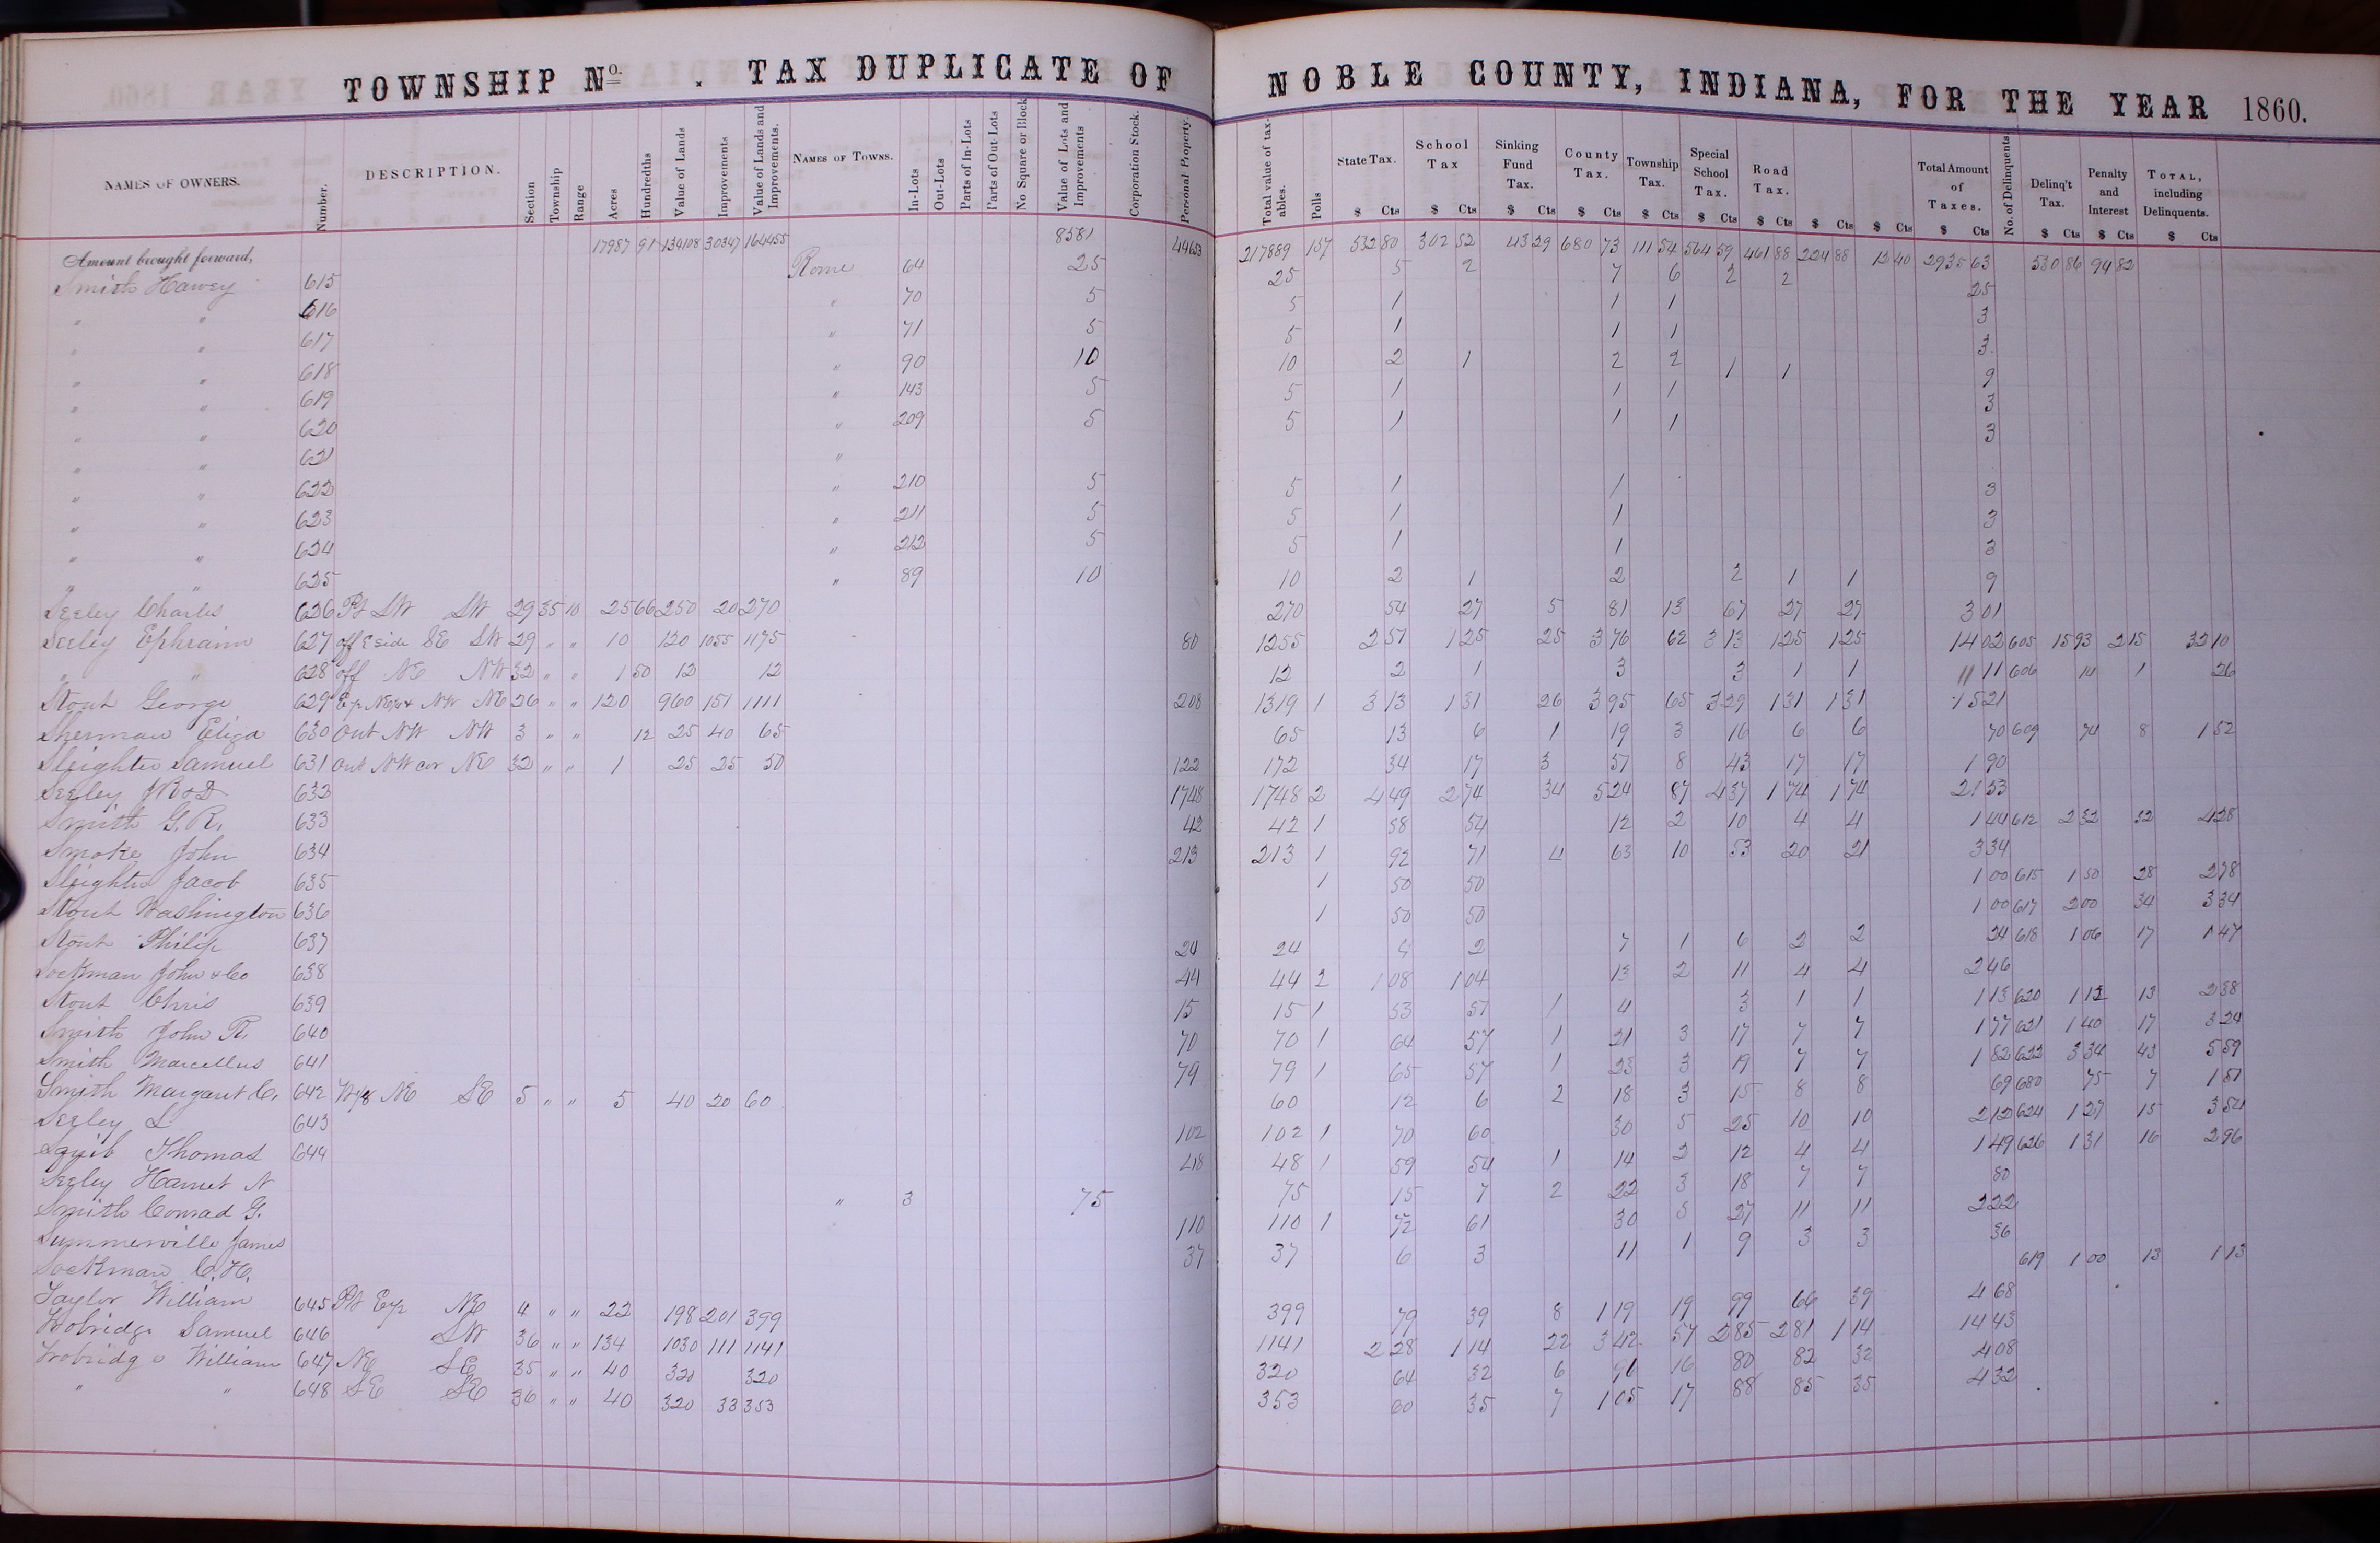 TOWNSHIP No. . TAX DUPLICATE OF NOBLE COUNTY, INDIANA, FOR THE YEAR 1860.
NAMES OF OWNERS. Number. DESCRIPTION. Section Township Range Acres Hundredths Value of Lands Improvements Value of Lands and Improvements. NAMES OF TOWNS. In-Lots Out-Lots Parts of In-Lots Parts of Out-Lots No Square or Block Value of Lots and Improvements Corporation Stock. Personal Property. Total value of taxables. Polls State Tax. School Tax Sinking Fund Tax. County Tax. Township Tax. Special School Tax. Road Tax. Total Amount of Taxes. No. of Delinquents Delinq't Tax. Penalty and Interest TOTAL, including Delinquents.
$ Cts $ Cts $ Cts $ Cts $ Cts $ Cts $ Cts $ Cts $ Cts $ Cts $ Cts $ Cts $ Cts
Amount brought forward, 17987 91 134108 30347 164455 8581 44653 217889 157 532 80 302 52 43 29 680 73 111 54 564 59 461 88 224 88 13 40 2935 63 530 86 94 82
Smith Harvey 615 Rome 64 25 25 5 2 7 6 2 2 25
" " 616 " 70 5 5 1 1 1 3
" " 617 " 71 5 5 1 1 1 3
" " 618 " 90 10 10 2 1 2 2 1 1 9
" " 619 " 143 5 5 1 1 1 3
" " 620 " 209 5 5 1 1 1 3
" " 621 "
" " 622 " 210 5 5 1 1 3
" " 623 " 211 5 5 1 1 3
" " 624 " 212 5 5 1 1 3
" " 625 " 89 10 10 2 1 2 2 1 1 9
Seeley Charles 626 Pt SW SW 29 35 10 25 66 250 20 270 270 54 27 5 81 13 67 27 27 3 01
Seeley Ephraim 627 off E side SE SW 29 " " 10 120 1055 1175 80 1255 2 51 1 25 25 3 76 62 3 13 1 25 1 25 14 02 605 15 93 2 15 32 10
" " 628 off NE NW 32 " " 1 50 12 12 12 2 1 3 3 1 1 11 606 14 1 26
Stout George 629 NW NE 26 " " 120 960 151 1111 208 1319 1 3 13 1 31 26 3 95 65 3 29 1 31 1 31 15 21
Sherman Eliza 630 Out NW NW 3 " " 12 25 40 65 65 13 6 1 19 3 16 6 6 70 609 74 8 1 52
Sleighter Samuel 631 Out NW cor NE 32 " " 1 25 25 50 122 172 34 17 3 51 8 43 17 17 1 90
Seeley J R & D 633 1748 1748 2 4 49 2 74 34 5 24 87 4 37 1 74 1 74 21 53
Smith G. R. 633 42 42 1 58 54 12 2 10 4 4 1 44 612 2 52 32 4 28
Smoke John 634 213 213 1 92 71 4 63 10 53 20 21 3 34
Sleighter Jacob 635 1 50 50 1 00 615 1 50 28 2 78
Stout Washington 636 1 50 50 1 00 617 2 00 34 3 34
Stout Philip 637 24 24 4 2 7 1 6 2 2 24 618 1 06 17 1 47
Sockman John & Co 638 44 44 2 1 08 1 04 13 2 11 4 4 2 46
Stout Chris 639 15 15 1 53 51 1 4 3 1 1 1 13 620 1 12 13 2 38
Smith John R. 640 70 70 1 64 57 1 21 3 17 7 7 1 77 621 1 40 17 3 24
Smith Marcellus 641 79 79 1 65 57 1 23 3 19 7 7 1 82 622 3 34 43 5 59
Smith Margaret C. 642 W 1/8 NE SE 5 " " 5 40 20 60 60 12 6 2 18 3 15 8 8 69 680 75 7 1 51
Seeley L 643 102 102 1 70 60 30 5 25 10 10 2 12 624 1 27 15 3 54
Squib Thomas 644 48 48 1 59 54 1 14 2 12 4 4 1 49 626 1 31 16 2 96
Seeley Harriet N " 3 75 75 15 7 2 22 3 18 7 7 80
Smith Conrad G. 110 110 1 72 61 30 5 27 11 11 2 22
Summerville James 37 37 6 3 11 1 9 3 3 36
Sockman C. H. 619 1 00 13 1 13
Taylor William 645 NE 4 " " 22 198 201 399 399 79 39 8 1 19 19 99 66 39 4 68
Trobridge Samuel 646 SW 36 " " 134 1030 111 1141 1141 2 28 1 14 22 3 42 57 2 85 2 81 1 14 14 43
Trobridge William 647 NE SE 35 " " 40 320 320 320 64 32 6 96 16 80 82 32 4 08
" " 648 SE SE 36 " " 40 320 33 353 353 60 35 7 1 05 17 88 85 35 4 32